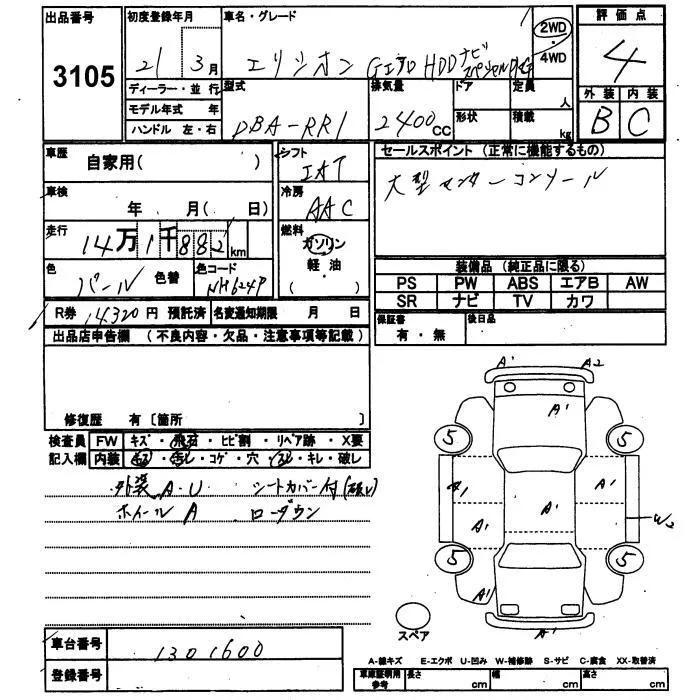 出品番号
3105
初度登録年月
21 3月
車名・グレード
エリシオン GエアロHDDナビ スペシャルPKG
2WD
4WD
評価点
4
外装 内装
B C
ディーラー・並行
モデル年式 年
ハンドル 左・右
型式
DBA-RR1
排気量
2400CC
ドア
形状
定員
人
積載
kg
車歴
自家用( )
シフト
IAT
車検
年 月( 日)
冷房
AAC
走行
14万1千882km
燃料
ガソリン
軽・油
( )
色
パール 色替
色コード
NH624P
R券 14,320円 預託済
名変通知期限 月 日
セールスポイント (正常に機能するもの)
大型センターコンソール
装備品 (純正品に限る)
PS PW ABS エアB AW
SR ナビ TV カワ
保証書
有・無
後日品
出品店申告欄 (不良内容・欠品・注意事項等記載)
修復歴 有〔箇所 〕
検査員 FW キズ・飛石・ヒビ割・リペア跡・X要
記入欄 内装 キズ・汚レ・コゲ・穴・スレ・キレ・破レ
外装 A・U シートカバー付(破レ)
ホイール A ローダウン
A1 A2
A1
5 5
A1 A1
A1 A1
W2
5 5
A1
A1
スペア
車台番号
1301600
登録番号
A-線キズ E-エクボ U-凹み W-補修跡 S-サビ C-腐食 XX-取替済
車庫証明用
参考
長さ cm
幅 cm
高さ cm